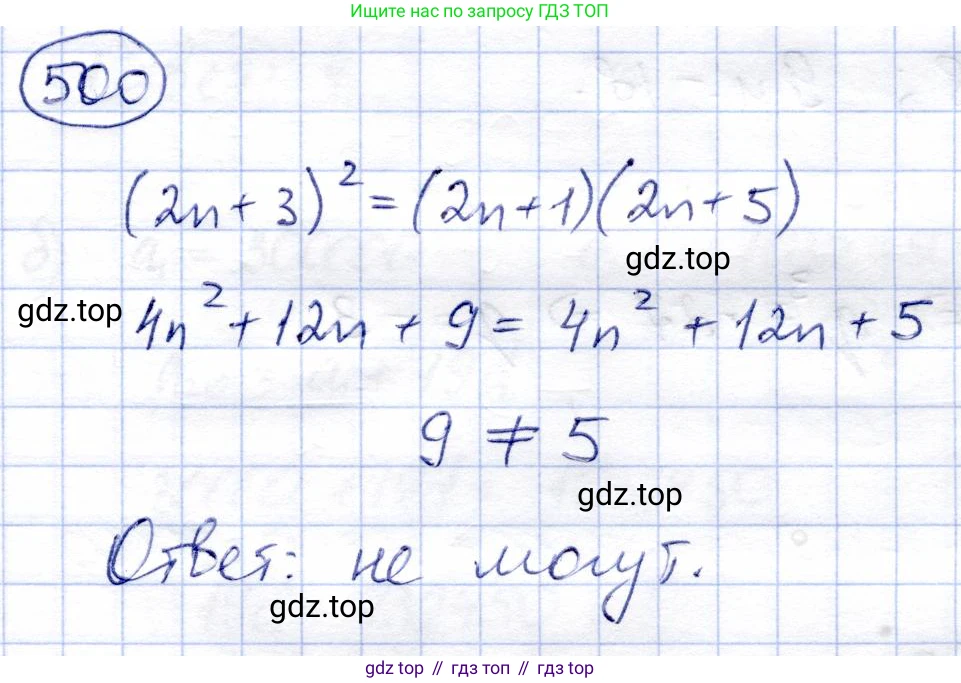 Ищите нас по запросу ГДЗ ТОП
500
(2n+3)² = (2n+1)(2n+5)
gdz.top
gdz.top
4n² + 12n + 9 = 4n² + 12n + 5
9 ≠ 5
gdz.top
Ответ: не могут.
gdz.top
gdz top // гдз топ // гдз top